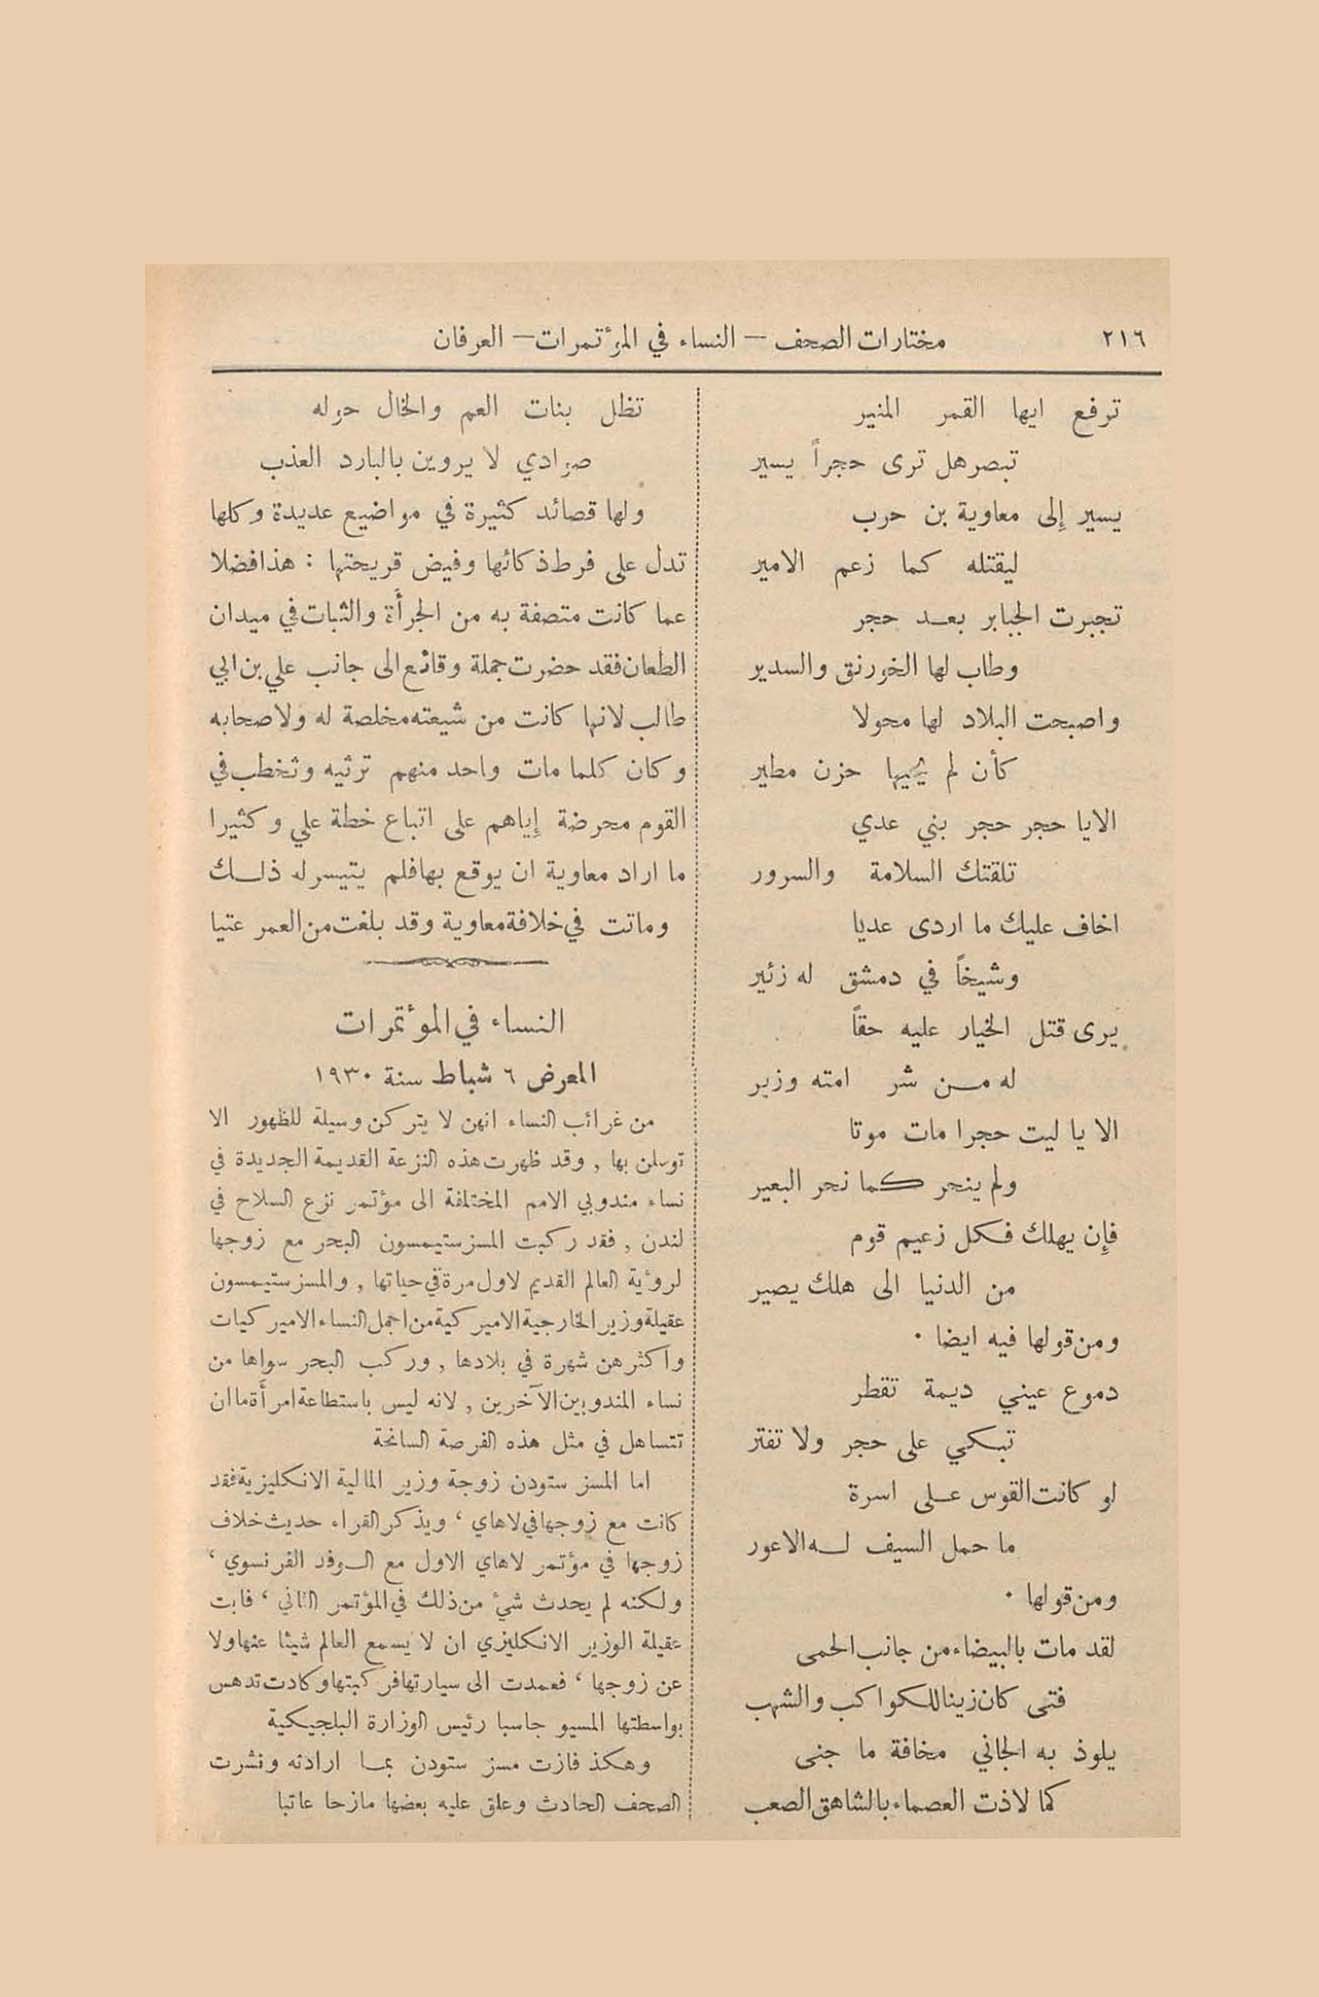 ٢١٦ مختارات الصحف – النساء في المؤتمرات – العرفان
ترفع ايها القمر المنير
تبصر هل ترى حجراً يسير
يسير إلى معاوية بن حرب
ليقتله كما زعم الامير
تجبرت الجبابر بعد حجر
وطاب لها الخورنق والسدير
واصبحت البلاد لها محولا
كأن لم يحييها حزن مطير
الا يا حجر حجر بني عدي
تلقتك السلامة والسرور
اخاف عليك ما اردى عديا
وشيخاً في دمشق له زئير
يرى قتل الخيار عليه حقاً
له من شر امته وزير
الا يا ليت حجرا مات موتا
ولم ينحر كما نحر البعير
فإن يهلك فكل زعيم قوم
من الدنيا الى هلك يصير
ومن قولها فيه ايضا ٠
دموع عيني ديمة تقطر
تبكي على حجر ولا تفتر
لو كانت القوس على اسرة
ما حمل السيف له الاعور
ومن قولها ٠
لقد مات بالبيضاء من جانب الحمى
فتى كان زينا للكواكب والشهب
يلوذ به الجاني مخافة ما جنى
كما لاذت العصماء بالشاهق الصعب
تظل بنات العم والخال حوله
صوادي لا يروين بالبارد العذب
ولها قصائد كثيرة في مواضيع عديدة وكلها
تدل على فرط ذكائها وفيض قريحتها : هذا فضلا
عما كانت متصفة به من الجرأة والثبات في ميدان
الطعان فقد حضرت جملة وقائع الى جانب علي بن ابي
طالب لانها كانت من شيعته مخلصة له ولاصحابه
وكان كلما مات واحد منهم ترثيه وتخطب في
القوم محرضة إياهم على اتباع خطة علي وكثيرا
ما اراد معاوية ان يوقع بها فلم يتيسر له ذلك
وماتت في خلافة معاوية وقد بلغت من العمر عتيا
النساء في المؤتمرات
المعرض ٦ شباط سنة ١٩٣٠
من غرائب النساء انهن لا يتركن وسيلة للظهور الا
توسلن بها , وقد ظهرت هذه النزعة القديمة الجديدة في
نساء مندوبي الامم المختلفة الى مؤتمر نزع السلاح في
لندن , فقد ركبت المسز ستيمسون البحر مع زوجها
لرؤية العالم القديم لاول مرة في حياتها , والمسز ستيمسون
عقيلة وزير الخارجية الاميركية من اجمل النساء الاميركيات
واكثرهن شهرة في بلادها , وركب البحر سواها من
نساء المندوبين الآخرين , لانه ليس باستطاعة امرأة ما ان
تتساهل في مثل هذه الفرصة السانحة
اما المسز ستودن زوجة وزير المالية الانكليزية فقد
كانت مع زوجها في لاهاي ، ويذكر القراء حديث خلاف
زوجها في مؤتمر لاهاي الاول مع الوفد الفرنسوي ،
ولكنه لم يحدث شئ من ذلك في المؤتمر الثاني ، فابت
عقيلة الوزير الانكليزي ان لا يسمع العالم شيئا عنها ولا
عن زوجها ، فعمدت الى سيارتها فركبتها وكادت تدهس
بواسطتها المسيو جاسبا رئيس الوزارة البلجيكية
وهكذ فازت مسز ستودن بما ارادته ونشرت
الصحف الحادث وعلق عليه بعضها مازحا عاتبا